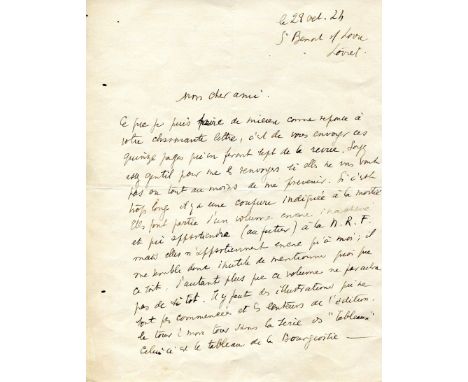 le 29 oct. 24
St Benoit s/ Loire
Loiret.
Mon cher ami.
Ce que je puis faire de mieux comme réponse à
votre charmante lettre, c'est de vous envoyer ces
quinze pages qui en feront sept de la revue. Soyez
assez gentil pour me les renvoyer si elles ne vous vont
pas ou tout au moins de me prévenir. Si c'est
trop long il y a une coupure indiquée à la moitié
Elles font partie d'un volume encore
et qui appartiendra (au futur) à la N. R. F.
mais elles n'appartiennent encore qu'à moi; il
me semble donc inutile de mentionner quoi que
ce soit. D'autant plus que ce volume ne paraitra
pas de si tôt. Il y faut des illustrations qui ne
sont pas commencées et les lenteurs de l'édition.
le tour à mon tour dans la série des "tableaux"
Celui-ci est le tableau de la Bourgeoisie —